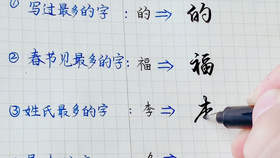 ① 写过最多的字:的⇒的
② 春节见最多的字:福⇒福
③ 姓氏最多的字:李⇒